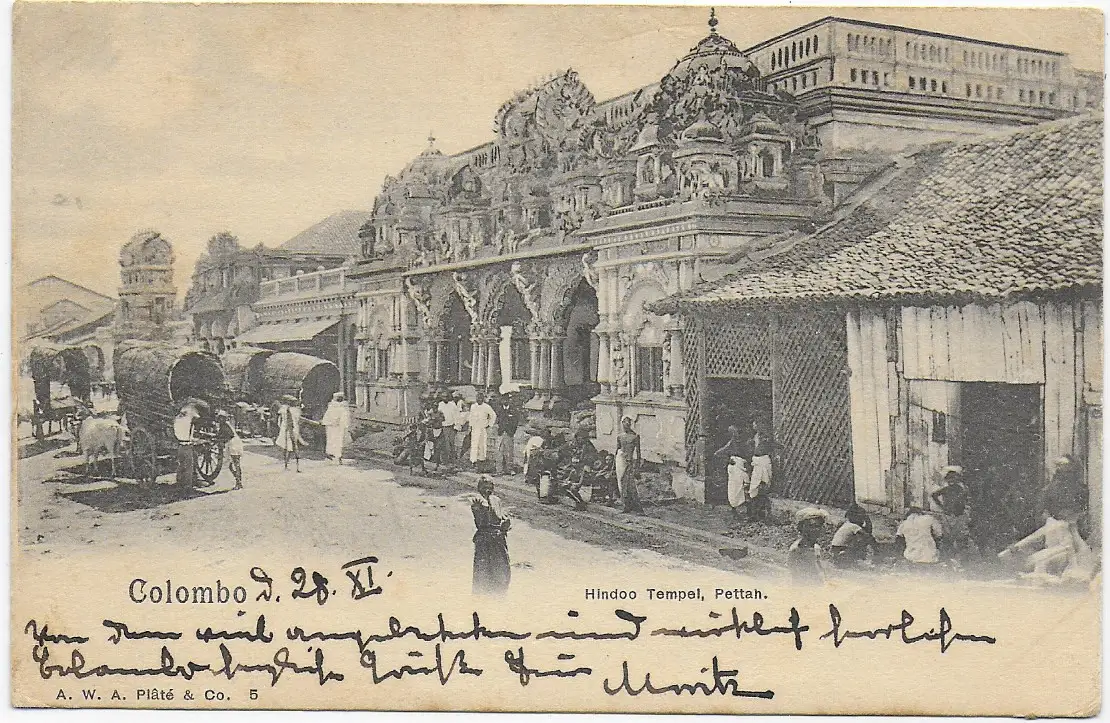 Colombo d. 28. XI.
Hindoo Tempel, Pettah.
Von dem viel angebeteten und wirklich herrlichen
Colombo herzliche Grüße Dein Moritz
A. W. A. Plâté & Co. 5